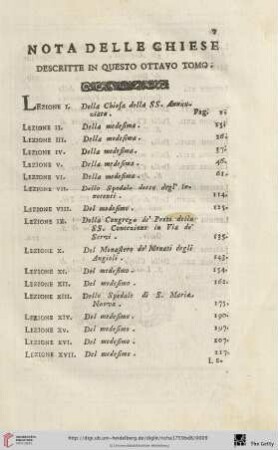 v
NOTA DELLE CHIESE
DESCRITTE IN QUESTO OTTAVO TOMO.
LEZIONE I. Della Chiesa della SS. Annun-
ziata. Pag. 1.
LEZIONE II. Della medesima. 15.
LEZIONE III. Della medesima. 26.
LEZIONE IV. Della medesima. 37.
LEZIONE V. Della medesima. 46.
LEZIONE VI. Della medesima. 61.
LEZIONE VII. Dello Spedale detto degl' In-
nocenti. 114.
LEZIONE VIII. Del medesimo. 125.
LEZIONE IX. Della Congrega de' Preti della
SS. Concezione in Via de'
Servi. 135.
LEZIONE X. Del Monastero de' Monaci degli
Angioli. 143.
LEZIONE XI. Del medesimo. 154.
LEZIONE XII. Del medesimo. 162.
LEZIONE XIII. Dello Spedale di S. Maria
Nuova. 175.
LEZIONE XIV. Del medesimo. 190.
LEZIONE XV. Del medesimo. 197.
LEZIONE XVI. Del medesimo. 207.
LEZIONE XVII. Del medesimo. 217.
Le-
The Getty